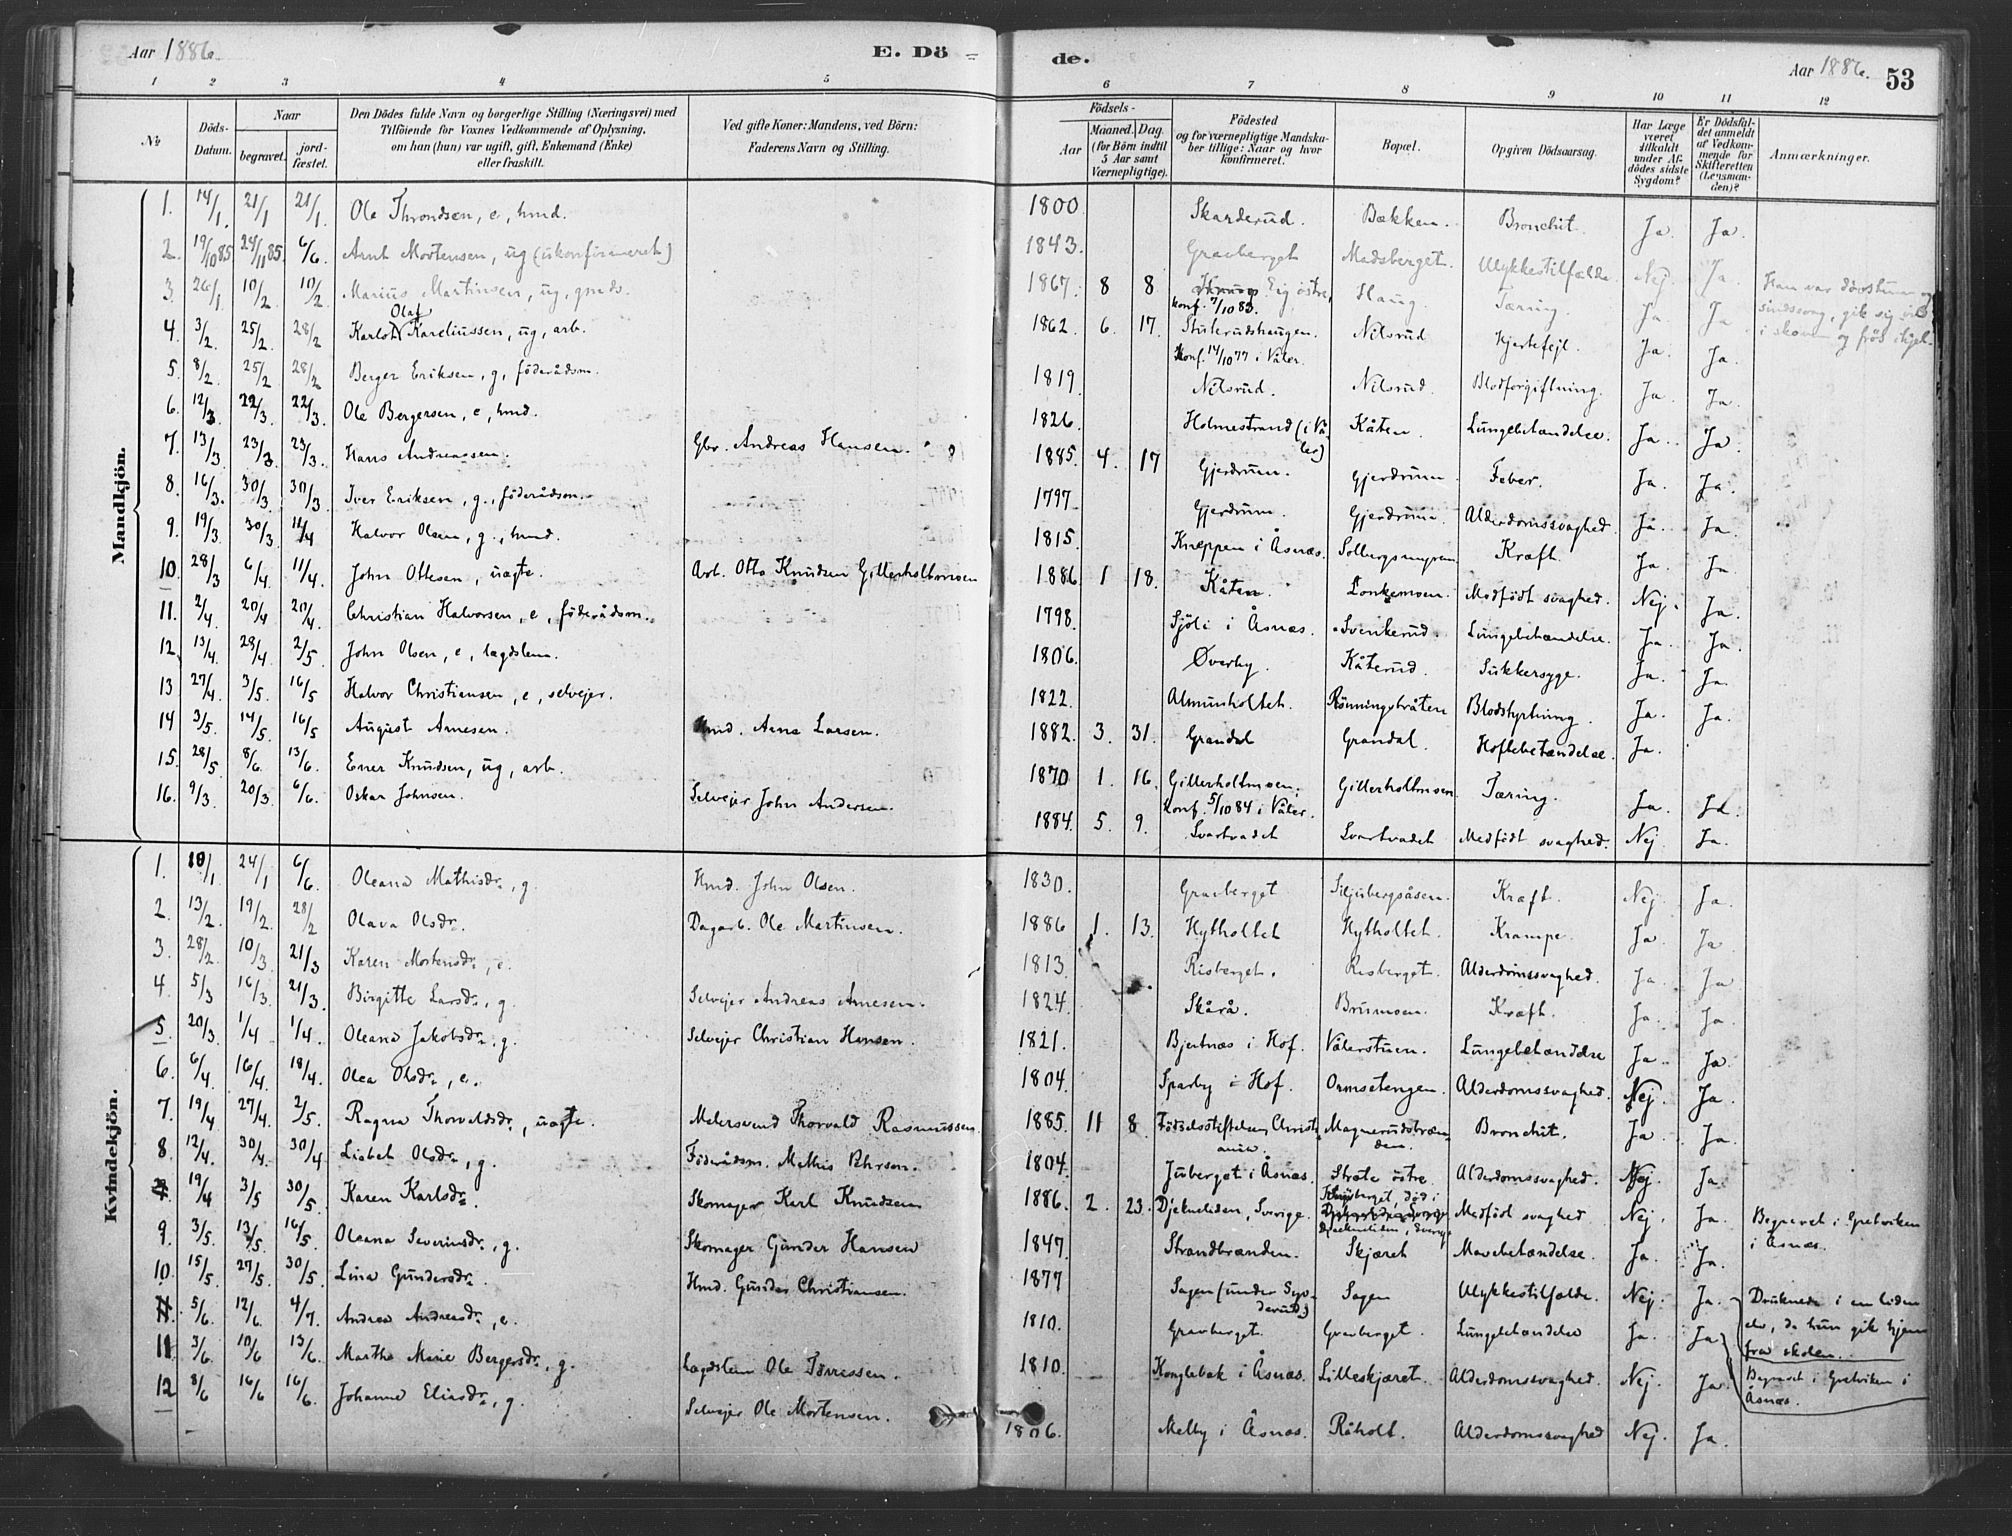 Aar 1886. E. Dö = de. Aar 1886. 53
1 2 3 4 5 6 7 8 9 10 11 12
No Döds-Datum. Naar begravet. jord-fæstet. Den Dödes fulde Navn og borgerlige Stilling (Næringsvei) med Tilföiende for Voxnes Vedkommende af Oplysning, om han (hun) var ugift, gift, Enkemand (Enke) eller fraskilt. Ved gifte Koner: Mandens, ved Börn: Faderens Navn og Stilling. Födsels- Aar Maaned. Dag. (for Börn indtil 5 Aar samt Værnepligtige). Födested og for værnepligtige Mandska-ber tillige: Naar og hvor Konfirmeret. Bopæl. Opgiven Dödsaarsag. Har Læge været tilkaldt under Af-dödes sidste Sygdom? Er Dödsfal-det anmeldt af Vedkom-mende for Skifteretten (Lensman-den)? Anmærkninger.
Mandkjön.
1. 14/1. 21/1 21/1. Ole Throndsen, e, hmd. 1800 Skarderud. Bækken. Bronchit. Ja. Ja.
2. 19/10 85 24/11 85. 6/6. Arnt Mortensen, ug (ukonfirmeret) 1843. Graaberget Madsberget. Ulykkestilfælde. Nej Ja Han var døvstum og sindssvag, gik sig vild i skoven og frös ihjel.
3. 26/1 10/2. 10/2. Marius Martinsen, ug, gmds. 1867. 8 8 Eig östre, konf. 7/10 83. Haug. Tæring. Ja Ja
4. 3/2. 25/2. 28/2 Karl Olaf Kareliussen, ug, arb. 1862. 6. 17. Stuterudshaugen. Konf. 14/10 77 i Våler. Nilsrud Hjertefejl. Ja. Ja.
5. 8/2. 25/2 28/2 Berger Eriksen, g, föderådsm. 1819. Nilsrud. Nilsrud. Blodforgiftning. Ja. Ja.
6. 12/3. 22/3. 22/3. Ole Bergersen, e, hmd. 1826. Holmestrand (i Våler) Kåten. Lungebetændelse. Ja. Ja.
7. 13/3. 23/3. 23/3. Hans Andreassen. Gbr. Andreas Hansen. 1885. 4. 17 Gjerdrum. Gjerdrum. Feber. Ja. Ja.
8. 16/3. 30/3. 30/3 Iver Eriksen, g., föderådsm. 1797. Gjerdrum. Gjerdrum. Alderdomssvaghed. Ja. Ja.
9. 19/3. 30/3. 11/4 Halvor Olsen, g., hmd. 1815. Kneppen i Åsnæs. Kræft. Ja. Ja
10 28/3 6/4. 11/4. John Ottesen, uægte. Arb. Otto Knudsen Gillerholtmoen 1886 1 18. Kåten. Lonkemoen. Medfödt svaghed. Nej. Ja.
11. 2/4. 20/4 20/4. Christian Halvorsen, e, föderådsm. 1798. Sjöli i Åsnæs. Svenkerud. Lungebetændelse. Ja. Ja.
12. 13/4. 28/4 2/5 John Olsen, e, lægdslem. 1806. Øverby. Kåterud. Sukkersyge. Ja. Ja.
13 27/4. 3/5. 16/5 Halvor Christiansen, e, selvejer. 1822. Almunholtet. Rönningsbråten Blodstyrtning. Ja. Ja.
14 3/5. 14/5. 16/5 August Arnesen. Hmd. Arne Larsen. 1882. 3. 31. Grandal Grandal. Hoftebetændelse. Ja.
15. 28/5 8/6. 13/6. Ener Knudsen, ug, arb. 1870 1. 16. Gillerholtmoen. konf. 5/10 84 i Våler. Gillerholtmoen Tæring. Ja. Ja.
16. 9/3. 20/3. 6/6. Oskar Johnsen. Selvejer John Andersen. 1884. 5. 9. Svartvadet Svartvadet Medfödt svaghed. Nej. Ja.
Kvindekjön.
1. 10/1. 24/1 6/6. Oleana Mathisdr., g. Hmd. John Olsen. 1830. Graaberget Siljubergsåsen. Kræft. Nej. Ja.
2. 13/2. 19/2. 28/2 Olava Olsdr. Dagarb. Ole Martinsen. 1886 1. 13. Hytholtet Hytholtet. Krampe. Ja. Ja
3. 28/2 10/3 21/3 Karen Mortensdr., e. 1813. Risberget. Risberget. Alderdomssvaghed. Ja. Ja
4. 5/3 16/3. 21/3. Birgitte Larsdr., g. Selvejer Andreas Arnesen. 1824. Skårå. Brumoen. Kræft. Ja. Ja.
5. 20/3. 1/4 1/4. Oleana Jakobsdr., g. Selvejer Christian Hansen. 1821. Bjertnæs i Hof. Vålerstuen. Lungebetændelse Ja. Ja.
6. 6/4. 16/4. 18/4. Olea Olsdr., e. 1804. Sparby i Hof. Ormsetengen. Alderdomssvaghed. Nej. Ja.
7. 19/4 27/4. 2/5. Ragna Thorvaldsdr., uægte. Malersvend Thorvald Rasmussen. 1885. 11 8. Födselsstiftelsen, Christiania. Magnerudsbrænden. Bronchit. Ja. Ja.
8. 12/4. 30/4. 30/4 Lisbet Olsdr., g. Föderådsm. Mathis Pehrsen. 1804. Juberget i Åsnæs. Strate östre. Alderdomssvaghed. Nej. Ja.
19/4 3/5 30/5. Karen Karlsdr. Skomager Karl Knudsen 1886. 2. 23. Djekneliden, Sverige. död i Djekneliden, Sverige Medfödt svaghed Nej. Ja. Begravet i Gretviken i Åsnæs.
9. 3/5. 13/5. 16/5. Oleana Severinsdr., g. Skomager Gunder Hansen 1847. Strandbrænden. Skjæret Mavebetændelse. Ja. Ja.
10. 15/5. 27/5. 30/5. Lina Gundersdr. Hmd. Gunder Christiansen. 1877 Sagen (under Syvderud) Sagen Ulykkestilfælde. Nej. Ja. Druknede i en liden elv, da hun gik hjem fra skolen.
5/6. 12/6. 4/7. Andrea Andreasdr., e. 1810. Graaberget. Graaberget. Lungebetændelse Ja. Ja
11 3/6. 10/6 13/6. Marthe Marie Bergersdr., g. Lægdslem Ole Törrissen. 1810. Konglebæk i Åsnæs. Lilleskjæret. Alderdomssvaghed. Nej. Ja. Begravet i Gretviken i Åsnæs.
12 8/6 16/6 16/6. Johanne Eliasdr., g. Selvejer Ole Mortensen. 1806. Melby i Åsnæs. Råholt. Alderdomssvaghed Nej. Ja.